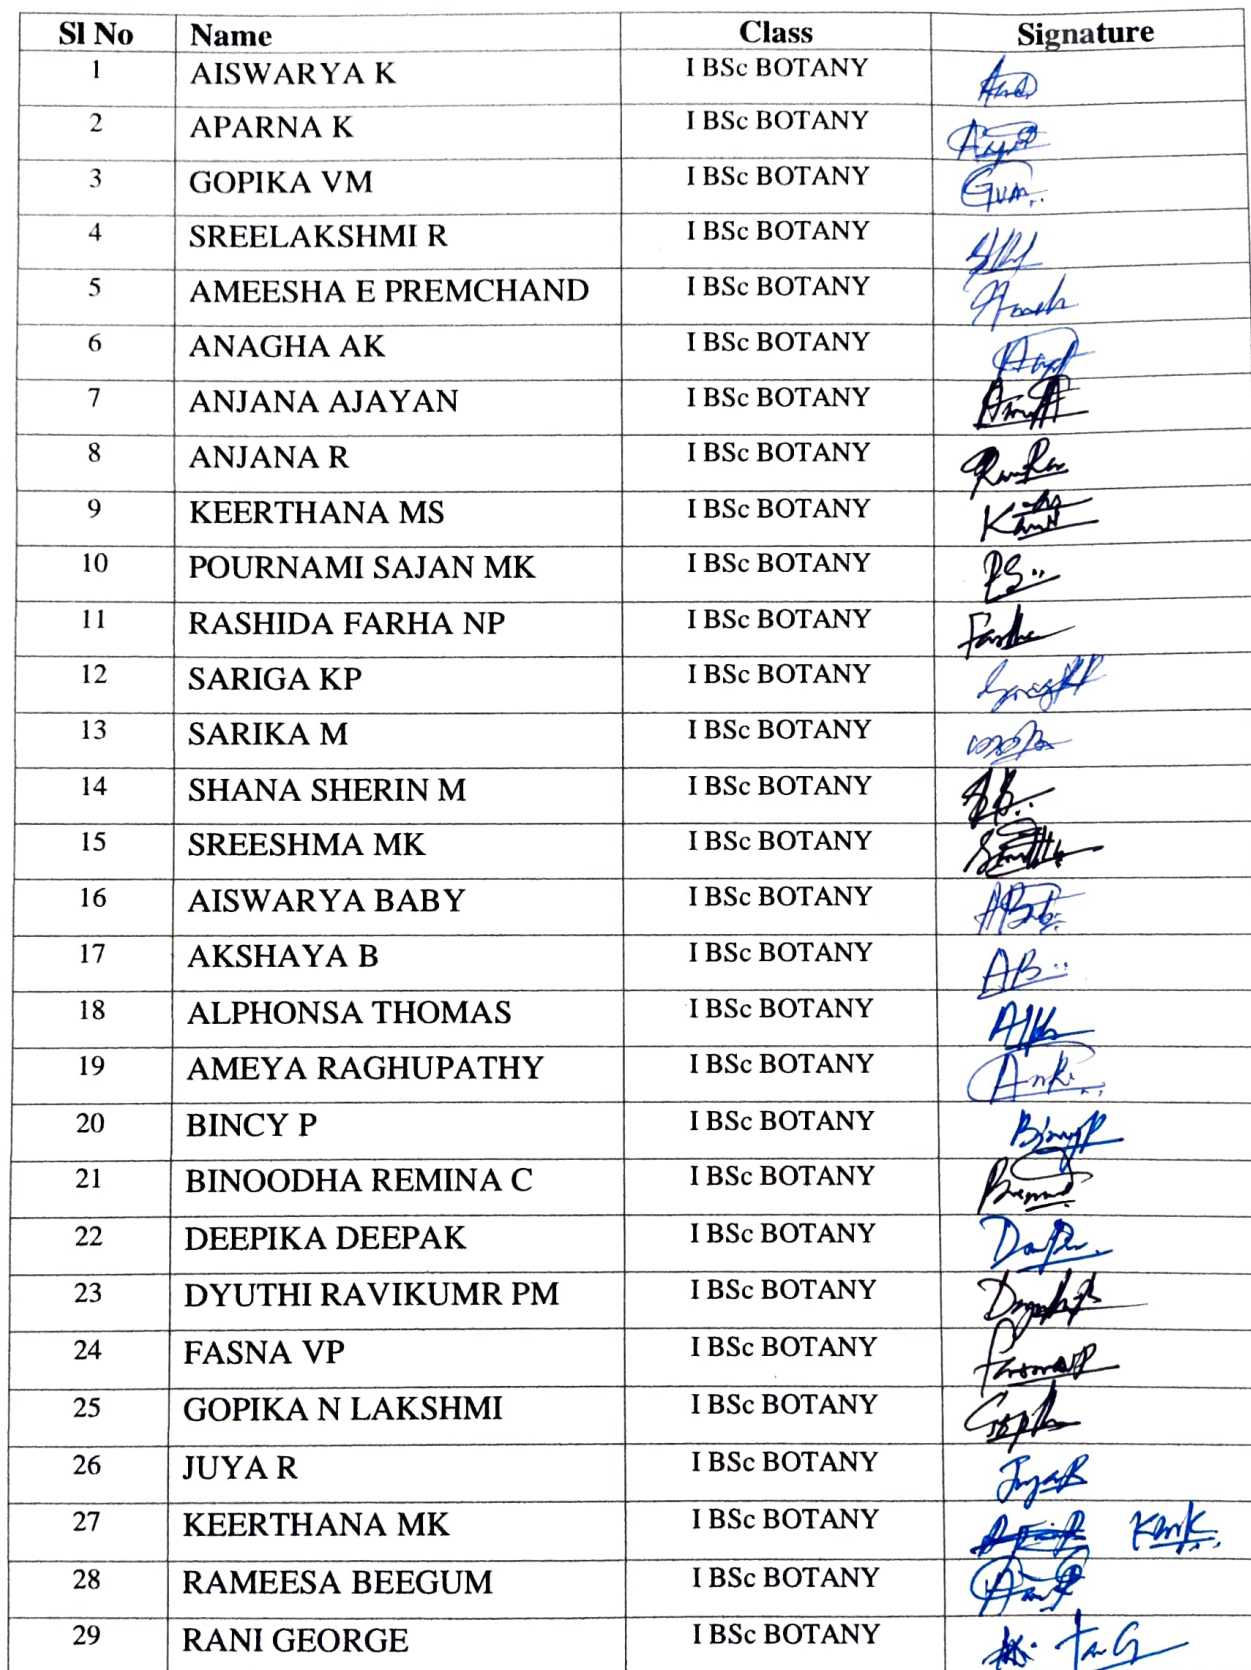 Sl No Name Class Signature
1 AISWARYA K I BSc BOTANY
2 APARNA K I BSc BOTANY
3 GOPIKA VM I BSc BOTANY GVM
4 SREELAKSHMI R I BSc BOTANY
5 AMEESHA E PREMCHAND I BSc BOTANY
6 ANAGHA AK I BSc BOTANY
7 ANJANA AJAYAN I BSc BOTANY
8 ANJANA R I BSc BOTANY
9 KEERTHANA MS I BSc BOTANY
10 POURNAMI SAJAN MK I BSc BOTANY PS
11 RASHIDA FARHA NP I BSc BOTANY
12 SARIGA KP I BSc BOTANY
13 SARIKA M I BSc BOTANY
14 SHANA SHERIN M I BSc BOTANY
15 SREESHMA MK I BSc BOTANY
16 AISWARYA BABY I BSc BOTANY
17 AKSHAYA B I BSc BOTANY AB
18 ALPHONSA THOMAS I BSc BOTANY
19 AMEYA RAGHUPATHY I BSc BOTANY
20 BINCY P I BSc BOTANY
21 BINOODHA REMINA C I BSc BOTANY
22 DEEPIKA DEEPAK I BSc BOTANY
23 DYUTHI RAVIKUMR PM I BSc BOTANY
24 FASNA VP I BSc BOTANY
25 GOPIKA N LAKSHMI I BSc BOTANY
26 JUYA R I BSc BOTANY
27 KEERTHANA MK I BSc BOTANY
28 RAMEESA BEEGUM I BSc BOTANY
29 RANI GEORGE I BSc BOTANY